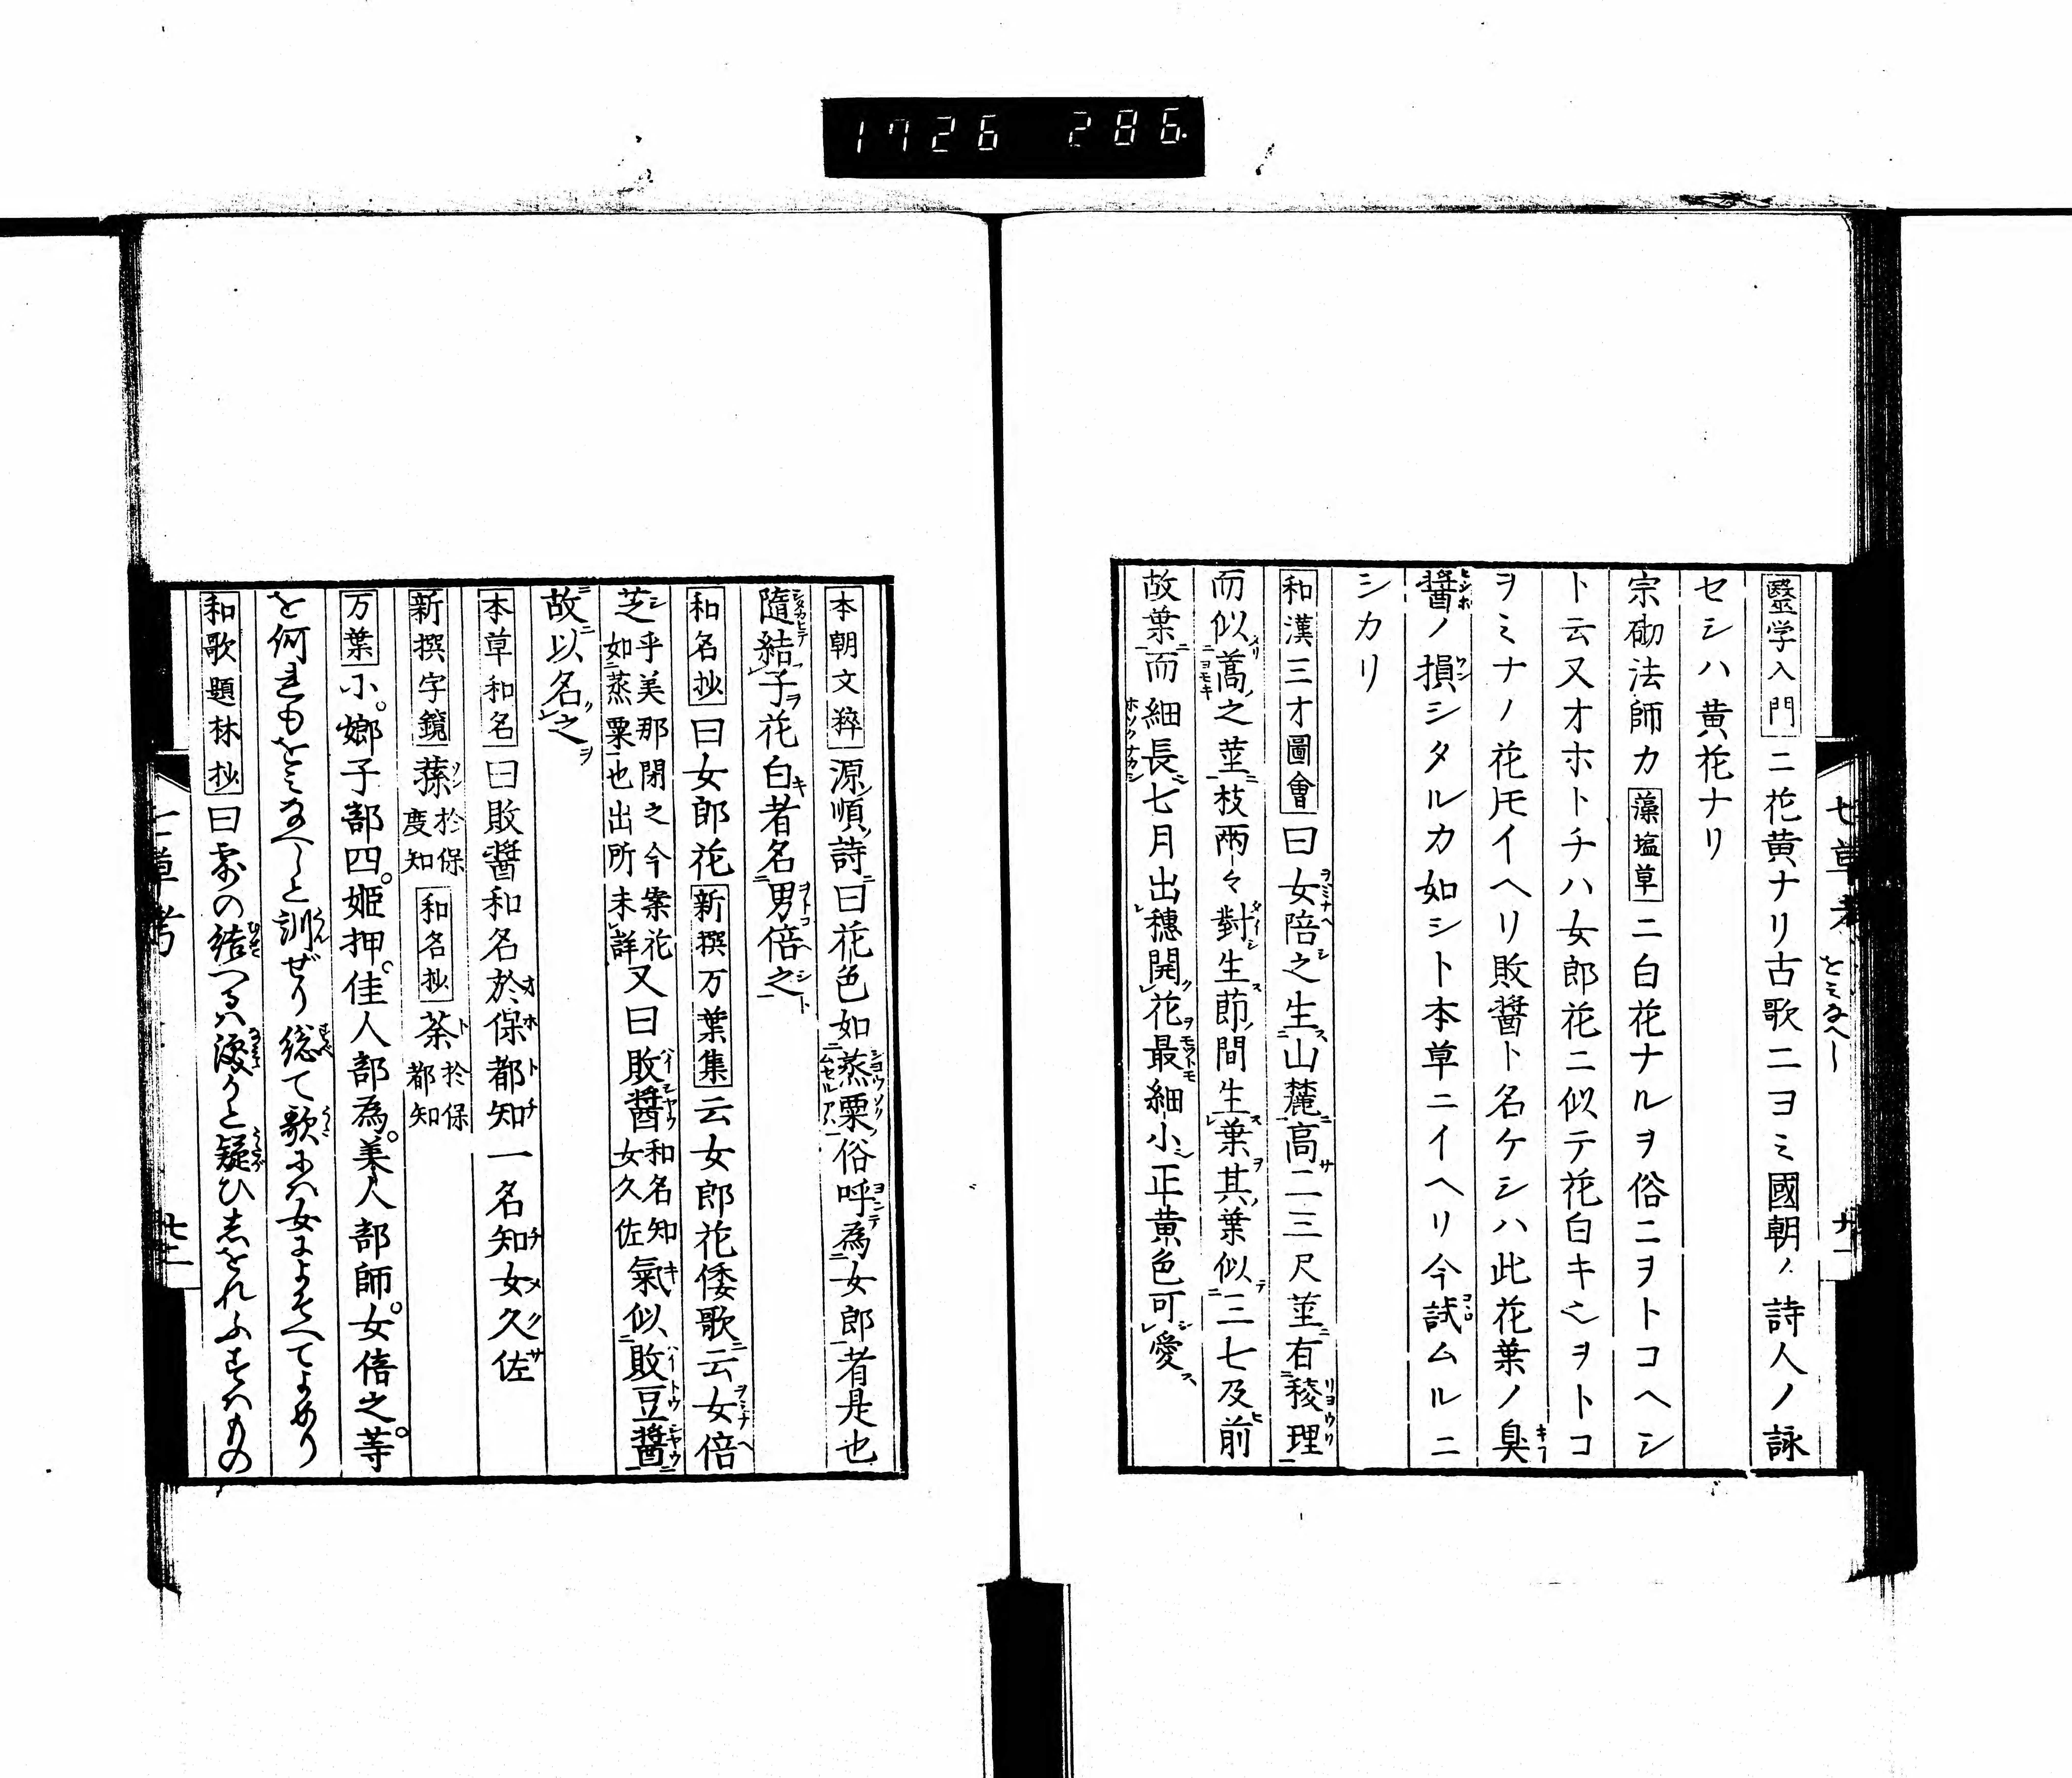 1726 286
七草考 をみなへし 廿一
醫学入門ニ花黄ナリ古歌ニヨミ國朝ノ詩人ノ詠
セシハ黄花ナリ
宗礀法師カ藻塩草ニ白花ナルヲ俗ニヲトコヘシ
ト云又オホトチハ女郎花ニ似テ花白キヲヲトコ
ヲミナノ花トモイヘリ敗醤ト名ケシハ此花葉ノ臭
醤ノ損シタルカ如シト本草ニイヘリ今試ムルニ
シカリ
和漢三才圖會曰女陪之生山麓高二三尺莖有稜理
而似蒿之莖枝兩々對生節間生葉其葉似三七及前
故葉而細長七月出穗開花最細小正黄色可愛
本朝文粹源順詩曰花色如蒸粟俗呼為女郎者是也
隨結子花白者名男倍之
和名抄曰女郎花新撰万葉集云女郎花倭歌云女倍
芝乎美那閉之今案花如蒸粟也出所未詳又曰敗醤和名知女久佐氣似敗豆醤
故以名之
本草和名曰敗醤和名於保都知一名知女久佐
新撰字鏡蓀於保度知和名抄荼於保都知
万葉小。嫏子部四。姫押。佳人部為。美人部師。女倍之。等
を何れもをみなへしと訓ぜり総て歌には女によそへてよめり
和歌題林抄曰露の結へるは涙かと疑ひしをれふすはもの
七草考 廿二